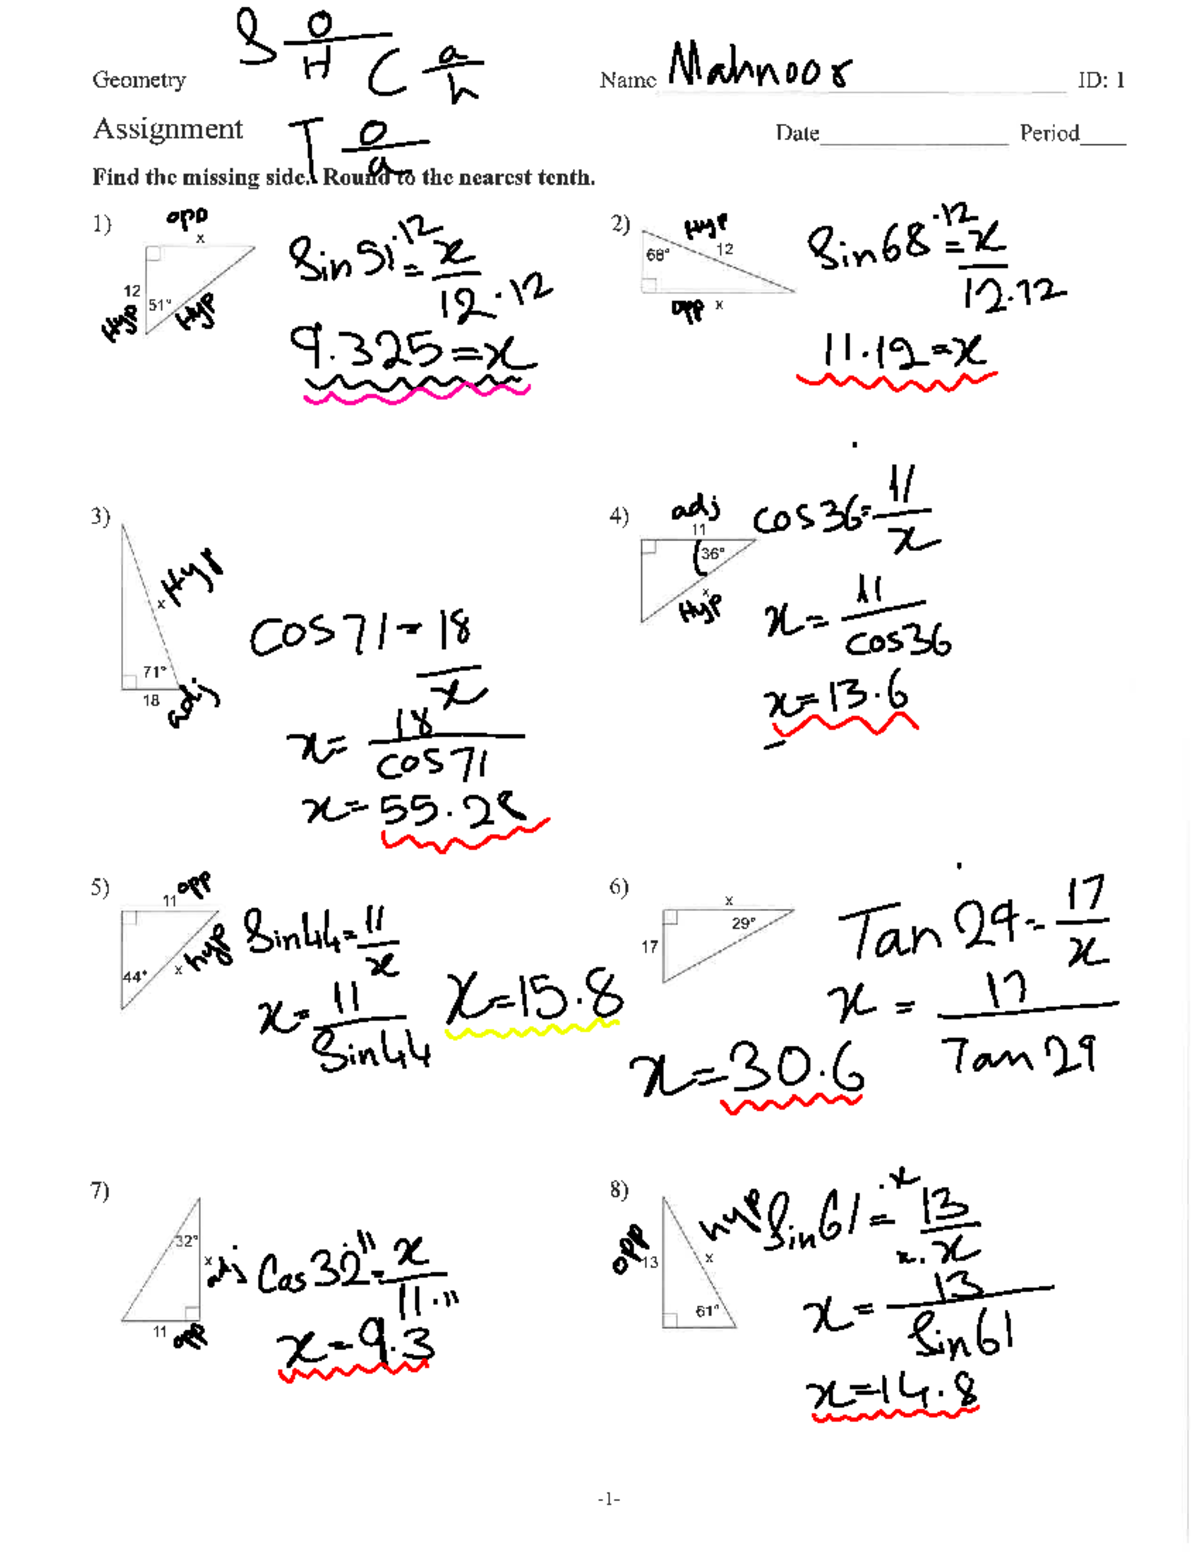 S O/H
C a/h
T O/a
Geometry
Name Mahnoor ID: 1
Assignment
Date Period
Find the missing side. Round to the nearest tenth.
1)
opp
x
12
51°
Hyp
Hyp
Sin 51 = x/12 ·12
·12
9.325 = x
2)
Hyp
68°
12
opp x
Sin 68 = x/12·12
·12
11.12 = x
3)
Hyp
x
71°
18
adj
cos 71 = 18/x
x = 18/cos 71
x = 55.28
4)
adj
11
36°
x
Hyp
cos 36 = 11/x
x = 11/cos36
x = 13.6
5)
11 opp
44°
x hyp
Sin44 = 11/x
x = 11/Sin44
x = 15.8
6)
x
29°
17
Tan 29 = 17/x
x = 17/Tan 29
x = 30.6
7)
32°
x
adj
11
opp
Cos 32 = x/11·11
·11
x = 9.3
8)
opp
13
hyp
x
61°
Sin 61 = 13/x
·x
x.
x = 13/Sin 61
x = 14.8
-1-